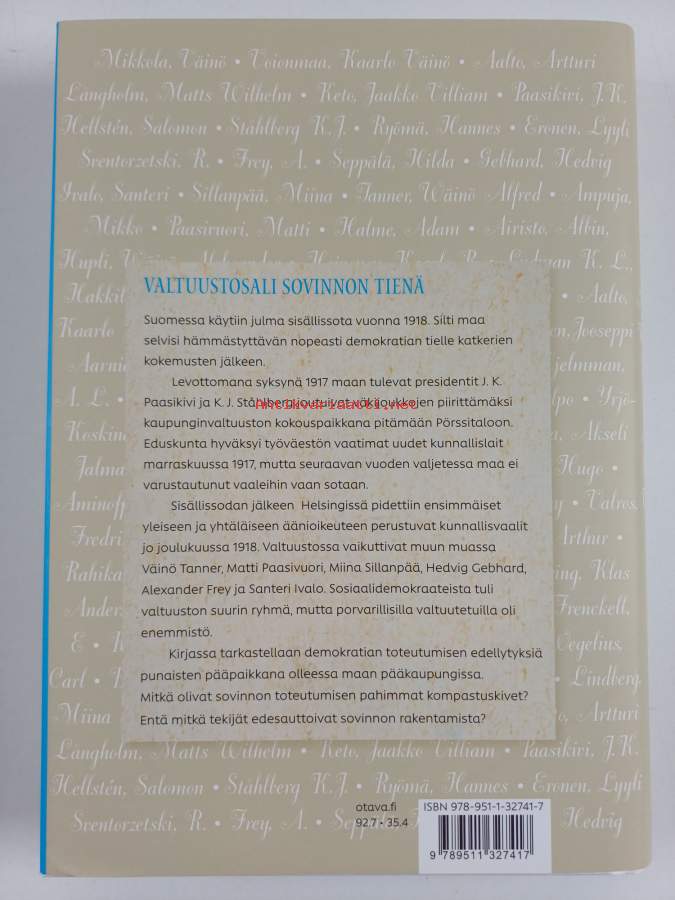 Mikkola, Väinö • Voionmaa, Kaarlo Väinö • Aalto, Artturi
Långholm, Matts Wilhelm • Keto, Jaakko Villiam • Paasikivi, J.K.
Hellstén, Salomon • Ståhlberg K.J. • Ryömä, Hannes • Eronen, Lyyli
Sventorzetski, R. • Frey, A. • Seppälä, Hilda • Gebhard, Hedvig
Ivalo, Santeri • Sillanpää, Miina • Tanner, Wäinö Alfred • Ampuja,
Mikko • Paasivuori, Matti • Halme, Adam • Airisto, Albin,
Hupli,
Hakkil • Aalto,
Kaarlo Jooseppi
Aarnio jelmman,
A. L. • • Yrjö-
Koskine Akseli
Jalma Hugo •
Aminoff • Valros,
Fredri Arthur •
Rahika Klas
Anders Frenckell,
E • Vegelius,
Carl • • Lindberg
Miina Artturi
VALTUUSTOSALI SOVINNON TIENÄ
Suomessa käytiin julma sisällissota vuonna 1918. Silti maa
selvisi hämmästyttävän nopeasti demokratian tielle katkerien
kokemusten jälkeen.
Levottomana syksynä 1917 maan tulevat presidentit J. K.
Paasikivi ja K. J. Ståhlberg joutuivat väkijoukkojen piirittämäksi
Antikvariaatti.net
kaupunginvaltuuston kokouspaikkana pitämään Pörssitaloon.
Eduskunta hyväksyi työväestön vaatimat uudet kunnallislait
marraskuussa 1917, mutta seuraavan vuoden valjetessa maa ei
varustautunut vaaleihin vaan sotaan.
Sisällissodan jälkeen Helsingissä pidettiin ensimmäiset
yleiseen ja yhtäläiseen äänioikeuteen perustuvat kunnallisvaalit
jo joulukuussa 1918. Valtuustossa vaikuttivat muun muassa
Väinö Tanner, Matti Paasivuori, Miina Sillanpää, Hedvig Gebhard,
Alexander Frey ja Santeri Ivalo. Sosiaalidemokraateista tuli
valtuuston suurin ryhmä, mutta porvarillisilla valtuutetuilla oli
enemmistö.
Kirjassa tarkastellaan demokratian toteutumisen edellytyksiä
punaisten pääpaikkana olleessa maan pääkaupungissa.
Mitkä olivat sovinnon toteutumisen pahimmat kompastuskivet?
Entä mitkä tekijät edesauttoivat sovinnon rakentamista?
Långholm, Matts Wilhelm • Keto, Jaakko Villiam • Paasikivi, J.K.
Hellstén, Salomon • Ståhlberg K.J. • Ryömä, Hannes • Eronen, Lyyli
Sventorzetski, R. • Frey, A. • Seppä Hedvig
otava.fi
92.7 • 35.4
ISBN 978-951-1-32741-7
9 789511 327417